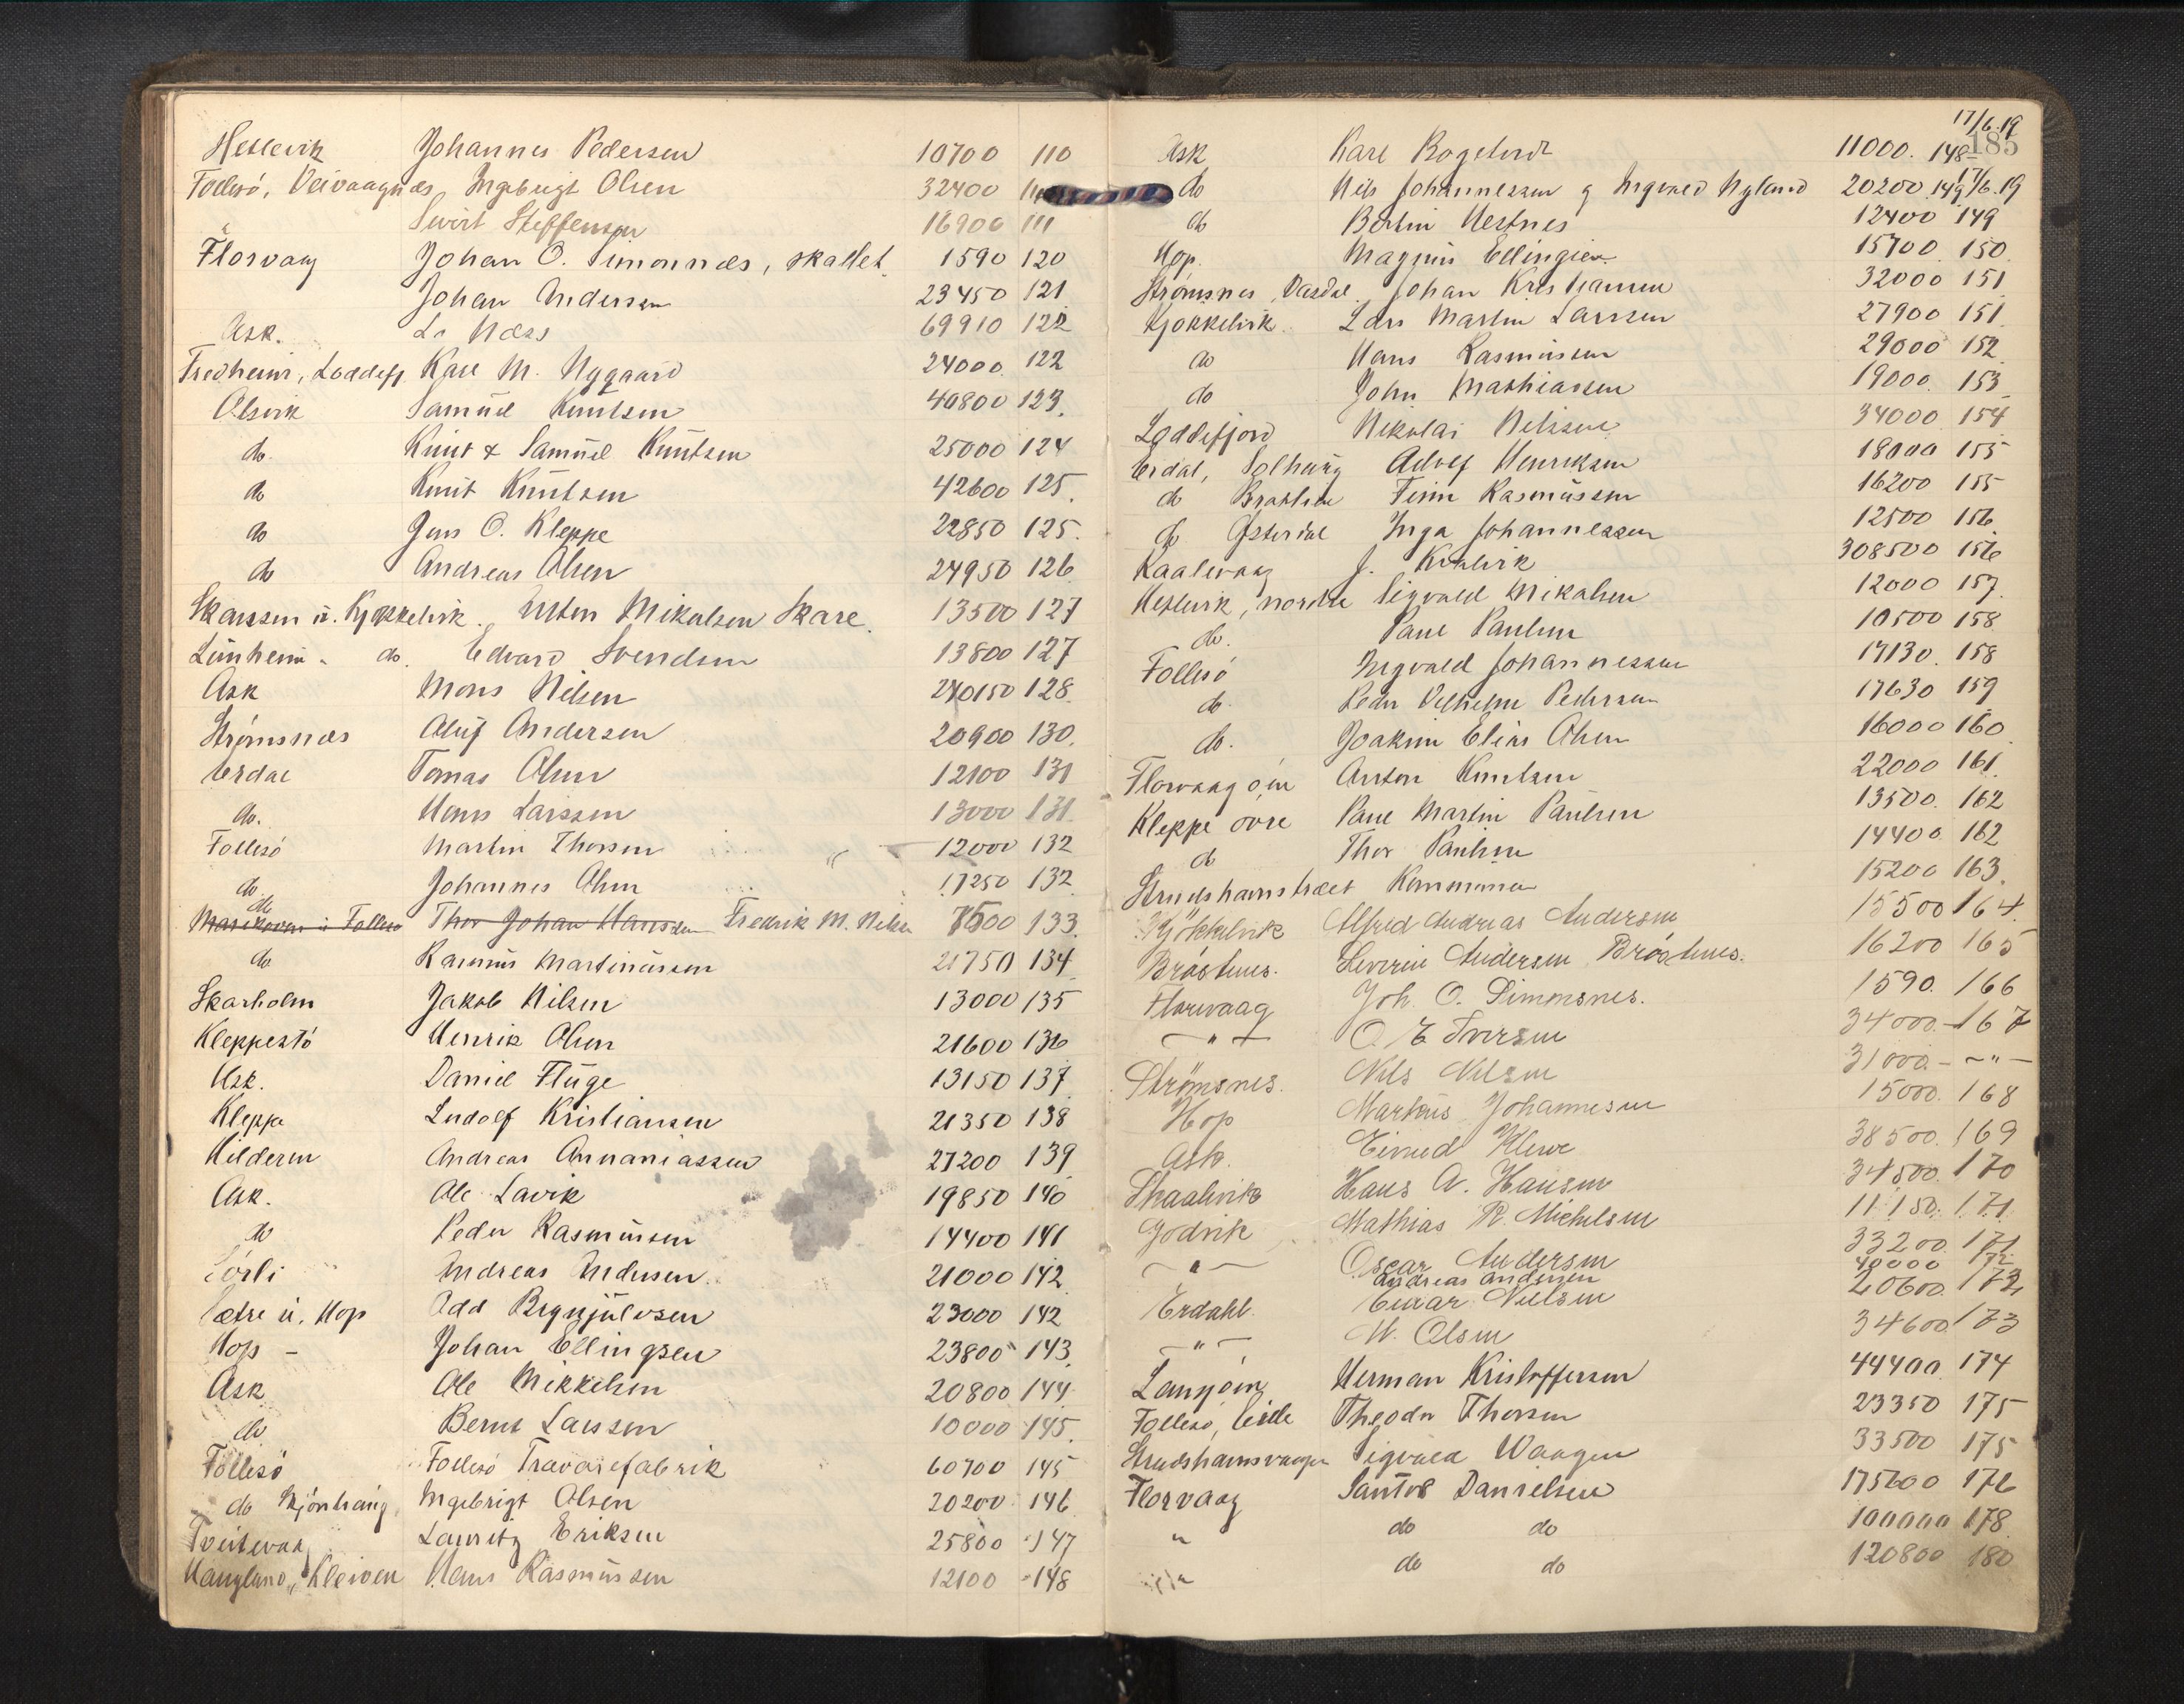 Hetlevik Johannes Pedersen 10700 110
Follesö, Veivaagnæs Ingebrigt Olsen 32400
Sivert Steffensen 16900 111
Florvaag Johan O. Simonnæs, skallet 1590 120
Johan Andersen 23450 121
Ask. L. Næss 69910 122
Fredheim, Loddefj. Karl M. Nygaard 24000 122
Olsvik Samuel Knutsen 40800 123.
do. Knut & Samuel Knutsen 25000 124
do Knut Knutsen 42600 125.
do Jens O. Kleppe 22850 125.
do Andreas Olsen 24950 126
Skarssen i Kjøkkelvik. Anton Mikalsen Skare. 13500 127
Lünheim - do. Edvard Svendsen 13800 127
Ask Mons Nilsen 20150 128.
Strømsnæs Oluf Andersen 20900 130.
Erdal Tomas Olsen 12100 131
do. Hans Larssen 13000 131
Follesö Martin Thorsen 12000 132
do. Johannes Olsen 17250 132
do Marikoven i Follesö Thor Johan Hanssen Fredrik M. Nilsen 7500 133.
do Rasmus Martinussen 21750 134
Skarholm Jakob Nilsen 13000 135
Kleppestö Henrik Olsen 21600 136
Ask. Daniel Fluge 13150 137
Kleppe Ludolf Kristiansen 21350 138
Hilderen Andreas Annaniassen 27200 139
Ask. Ole Lavik 19850 140
do Peder Rasmussen 14400 141
Sörli Andreas Andersen. 21000 142
Sætre i. Hop Odd Brynjulvsen 23000 142
Hop - Johan Ellingsen 23800 143.
Ask Ole Mikkelsen 20800 144
do Bernt Larssen 10000 145.
Follesö Follesö Trævarefabrik 60700 145
do Mjönhaug Ingebrigt Olsen 20200 146
Tveitevaag Lauritz Eriksen 25800 147
Haugland, Kleiven Hans Rasmussen 12100 148
17/6.19
185
Ask Karl Rogelord 11000. 148
do Nils Johannessen og Ingvald Nyland 20200 149 17/6.19
do Bertin Vestnes 12400 149
Hop. Magnus Ellingsen 15700 150
Strømsnes, Vasdal. Johan Kristiansen 32000 151
Kjøkkelvik. Lars Martin Larssen 27900 151
do Hans Rasmussen 29000 152
do John Mathiassen 19000. 153
Loddefjord Nikolai Nilssen 34000 154
Erdal, Solhaug Adolf Henriksen 18000 155
do Brattlie Finn Rasmussen 16200 155
do Østerdal Inga Johannessen 12500 156
Kaalevaag J. Kvalvik 308500 156
Hetlevik, nordre Sigvald Mikalsen 12000 157
do. Paul Paulsen 10500 158
Follesö Ingvald Johannessen 17130. 158
do. Peder Vilhelm Pedersen 17630 159
do. Joakim Elias Olsen 16000 160
Florvaagöen Anton Knutsen 22000 161
Kleppe övre Paul Martin Paulsen 13500. 162
do Thor Paulsen 14400 162
Strudshamstræet Kommunen 15200 163.
Kjökkelvik Alfred Andreas Andersen 15500 164.
Bröstenes. Severin Andersen Bröstenes. 16200 165
Florvaag Joh. O. Simmsnes. 1590. 166
— " — O. E. Iversen 34000.- 167
Strömsnes. Nils Nilsen 31000.- - " -
Hop Markus Johannesen 15000. 168
Ask. Eivind Kleve 38500. 169
Skaalvik Hans A. Hansen 34500. 170
Godvik Mathias R. Michelsen 11150. 171
— " — Oscar Andersen 33200 171
Andreas Andersen 40000 172
Erdahl. Einar Nielsen 20600. 172
— " — M. Olsen 34600 173
Langöen Herman Kristoffersen 44400 174
Follesö, lille Theodor Thorsen 23350 175
Strudshamsvaagen Sigvald Waagen 33500 175
Florvaag Santos Danielsen 175600 176
" do do 100000 178.
" do do 120800 180